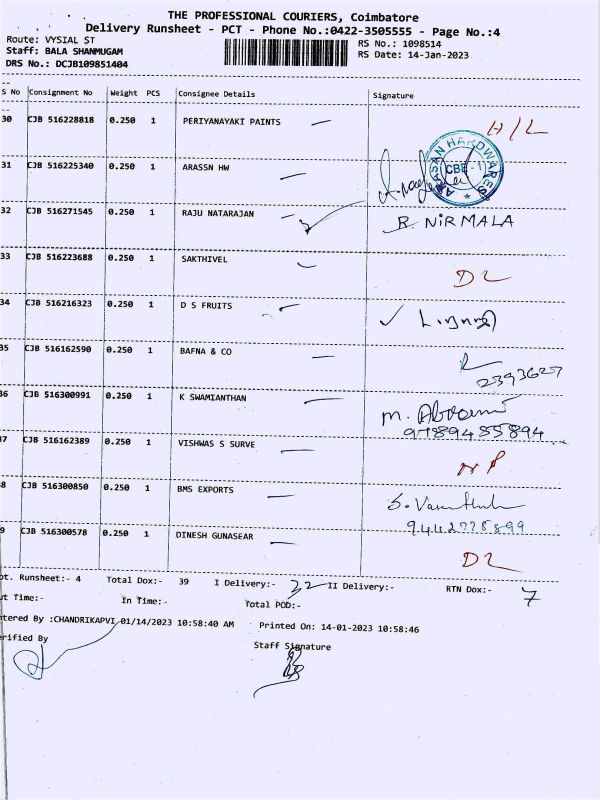 THE PROFESSIONAL COURIERS, Coimbatore
Delivery Runsheet - PCT - Phone No.:0422-3505555 - Page No.:4
Route: VYSIAL ST
RS No.: 1098514
Staff: BALA SHANMUGAM
RS Date: 14-Jan-2023
DRS No.: DCJB109851404
S No Consignment No Weight PCS Consignee Details Signature
30 CJB 516228818 0.250 1 PERIYANAYAKI PAINTS H/L
31 CJB 516225340 0.250 1 ARASSN HW
ARASAN HARDWARES CBE-1
32 CJB 516271545 0.250 1 RAJU NATARAJAN R. NIRMALA
33 CJB 516223688 0.250 1 SAKTHIVEL DL
34 CJB 516216323 0.250 1 D S FRUITS
35 CJB 516162590 0.250 1 BAFNA & CO
2393627
36 CJB 516300991 0.250 1 K SWAMIANTHAN
9789485894
37 CJB 516162389 0.250 1 VISHWAS S SURVE NP
8 CJB 516300850 0.250 1 BMS EXPORTS
9442225899
9 CJB 516300578 0.250 1 DINESH GUNASEAR DL
pt. Runsheet:- 4 Total Dox:- 39 I Delivery:- 32 II Delivery:- RTN Dox:- 7
ut Time:- In Time:- Total POD:-
ntered By :CHANDRIKAPVI 01/14/2023 10:58:40 AM Printed On: 14-01-2023 10:58:46
erified By Staff Signature